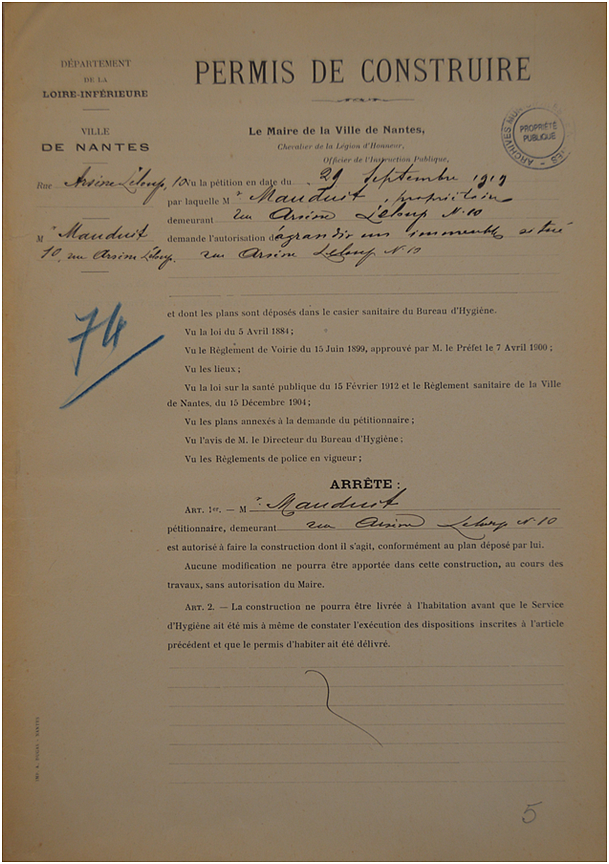 DÉPARTEMENT
DE LA
LOIRE-INFÉRIEURE
VILLE
DE NANTES
PERMIS DE CONSTRUIRE
PROPRIÉTÉ
PUBLIQUE
Le Maire de la Ville de Nantes,
Chevalier de la Légion d'Honneur,
Officier de l'Instruction Publique,
Rue Arsène Leloup, 10
Mr Mauduit
10, rue Arsène Leloup.
Vu la pétition en date du 29 Septembre 1919
par laquelle Mr Mauduit, propriétaire
demeurant rue Arsène Leloup N° 10
demande l'autorisation d'agrandir un immeuble situé
rue Arsène Leloup N° 10
et dont les plans sont déposés dans le casier sanitaire du Bureau d'Hygiène.
74
Vu la loi du 5 Avril 1884 ;
Vu le Règlement de Voirie du 15 Juin 1899, approuvé par M. le Préfet le 7 Avril 1900 ;
Vu les lieux ;
Vu la loi sur la santé publique du 15 Février 1912 et le Règlement sanitaire de la Ville
de Nantes, du 15 Décembre 1904 ;
Vu les plans annexés à la demande du pétitionnaire ;
Vu l'avis de M. le Directeur du Bureau d'Hygiène ;
Vu les Règlements de police en vigueur ;
ARRÊTE :
ART. 1er. — Mr Mauduit
pétitionnaire, demeurant rue Arsène Leloup N° 10
est autorisé à faire la construction dont il s'agit, conformément au plan déposé par lui.
Aucune modification ne pourra être apportée dans cette construction, au cours des
travaux, sans autorisation du Maire.
ART. 2. — La construction ne pourra être livrée à l'habitation avant que le Service
d'Hygiène ait été mis à même de constater l'exécution des dispositions inscrites à l'article
précédent et que le permis d'habiter ait été délivré.
5